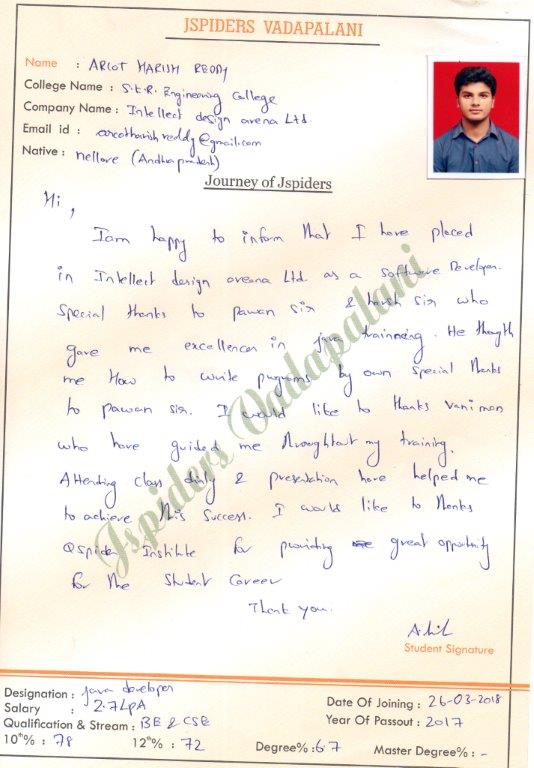 JSPIDERS VADAPALANI
Name : ARCOT HARISH REDDY
College Name : S.K.R. Engineering College
Company Name : Intellect design arena Ltd.
Email id : arcotharishreddy@gmail.com
Native : nellore (Andhra pradesh)
Journey of Jspiders
Hi,
I am happy to inform that I have placed
in Intellect design areana Ltd. as a Software Developer.
Special thanks to pawan sir & harsh sir who
gave me excellences in java trainning. He thougth
me How to write programs by own special thanks
to pawan sir. I would like to thanks vani mam
who have guided me throughtout my training.
Attending class daily & presentation have helped me
to achieve this success. I would like to thanks
Qspider Institute for providing great opportunity
for the Student Career
Thank you.
Student Signature
Jspiders Vadapalani
Designation : java developer
Salary : 2.7LPA
Qualification & Stream : BE & CSE
10th% : 78 12th% : 72 Degree% : 6.7 Master Degree% : -
Date Of Joining : 26-03-2018
Year Of Passout : 2017